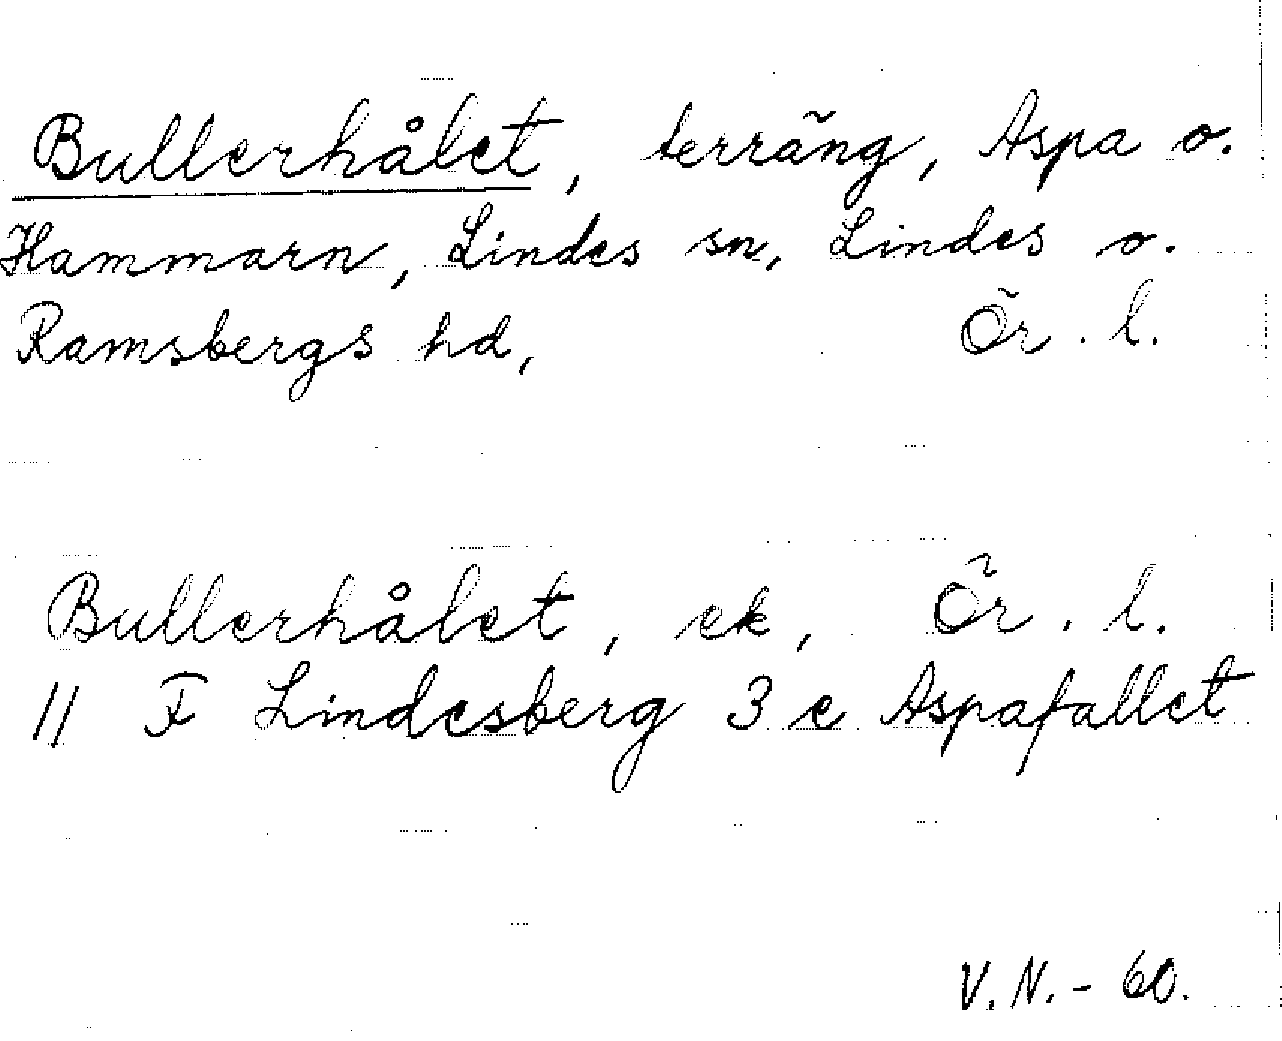 Bullerhålet, terräng, Aspa o.
Hammarn, Lindes sn, Lindes o.
Ramsbergs hd, Ör. l.
Bullerhålet, ek, Ör. l.
11 F Lindesberg 3 e Aspafallet
V.N.- 60.